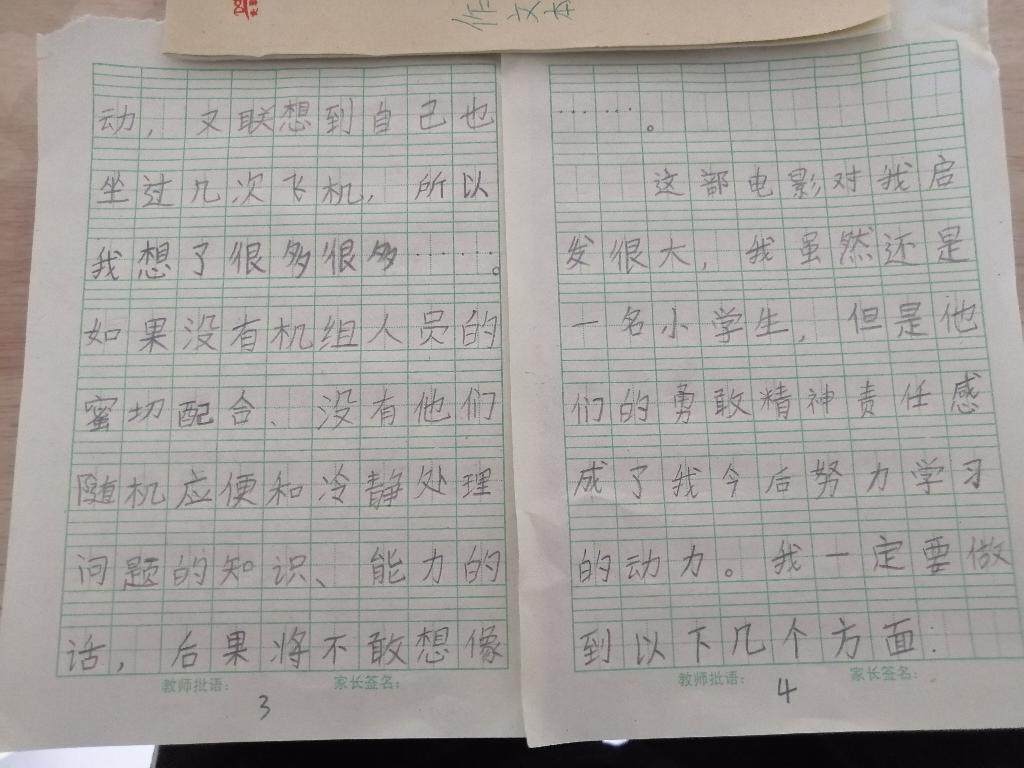 作文本
动，又联想到自己也
坐过几次飞机，所以
我想了很多很多……。
如果没有机组人员的
蜜切配合、没有他们
随机应便和冷静处理
问题的知识、能力的
话，后果将不敢想像
教师批语： 家长签名：
3
……。
这部电影对我启
发很大，我虽然还是
一名小学生，但是他
们的勇敢精神责任感
成了我今后努力学习
的动力。我一定要做
到以下几个方面：
教师批语： 家长签名：
4